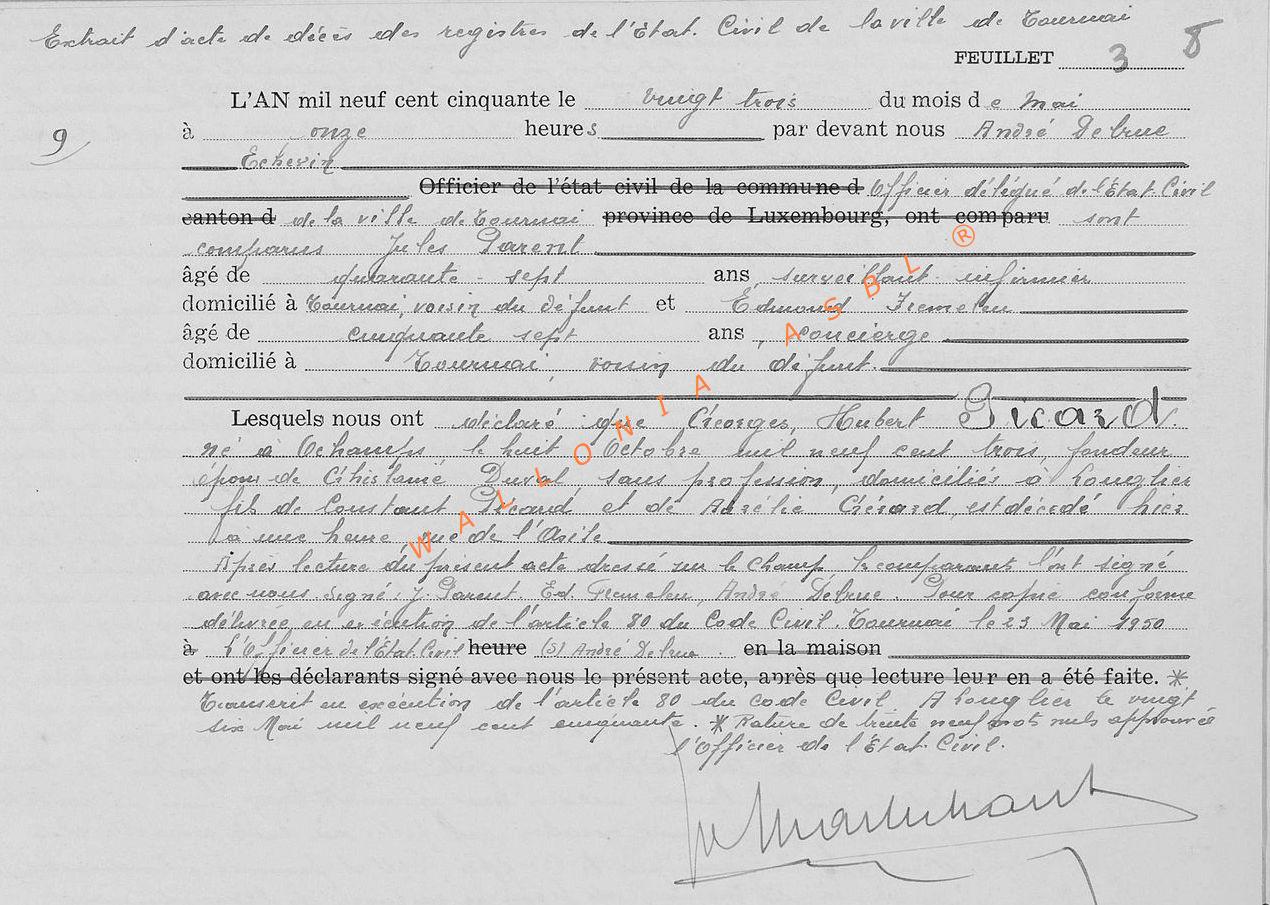 Extrait d'acte de décès des registres de l'Etat. Civil de la ville de Tournai
FEUILLET 3 8
L'AN mil neuf cent cinquante le vingt trois du mois de Mai
9 à onze heures par devant nous André Delrue
Echevin
Officier de l'état civil de la commune d Officier délégué de l'Etat. Civil
canton d de la ville de Tournai province de Luxembourg, ont comparu sont
comparus Jules Parent
âgé de quarante-sept ans, surveillant infirmier
domicilié à Tournai, voisin du défunt et Edmond
âgé de cinquante sept ans, concierge
domicilié à Tournai, voisin du défunt.
Lesquels nous ont déclaré que Georges, Hubert Picard
né à Ochamps, le huit Octobre mil neuf cent trois, fondeur
époux de Ghislaine Duval, sans profession, domiciliés à Longlier
fils de Constant Picard, et de Aurélie Gérard, est décédé hier
à une heure, rue de l'Asile
Après lecture du présent acte dressé sur le champ les comparants l'ont signé
avec nous. Signé: J. Parent. Ed. André Delrue. Pour copie conforme
délivrée en exécution de l'article 80 du Code Civil. Tournai le 23 Mai 1950
à L'Officier de l'Etat. Civil heure (S) André Delrue. en la maison
et ont les déclarants signé avec nous le présent acte, après que lecture leur en a été faite. *
Transcrit en exécution de l'article 80 du Code Civil. A Longlier le vingt
six Mai mil neuf cent cinquante. * Rature de trente neuf mots nuls approuvée
l'Officier de l'Etat. Civil.
WALLONIA ASBL ®